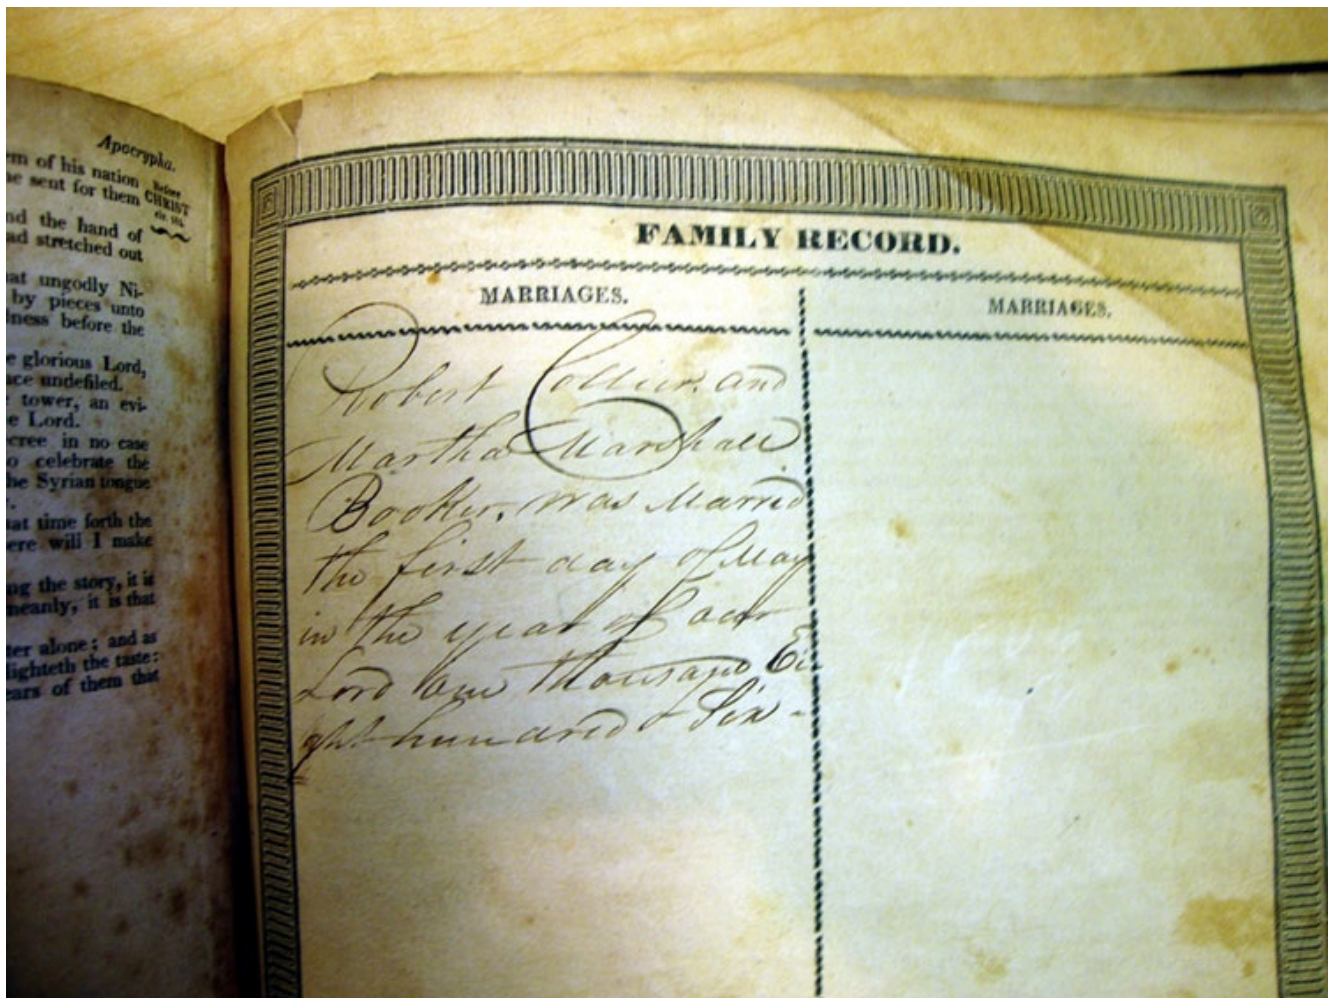 Apocrypha.
em of his nation
e sent for them
Before
CHRIST
nd the hand of
ad stretched out
at ungodly Ni-
by pieces unto
lness before the
e glorious Lord,
ace undefiled.
tower, an evi-
e Lord.
cree in no case
o celebrate the
he Syrian tongue
at time forth the
ere will I make
ng the story, it is
meanly, it is that
ter alone; and as
lighteth the taste:
ears of them that
FAMILY RECORD.
MARRIAGES.
Robert Collier, and
Martha Marshall
Booker, was Married
the first day of May
in the year of our
Lord one thousand Ei
ght hundred & Six -
MARRIAGES.